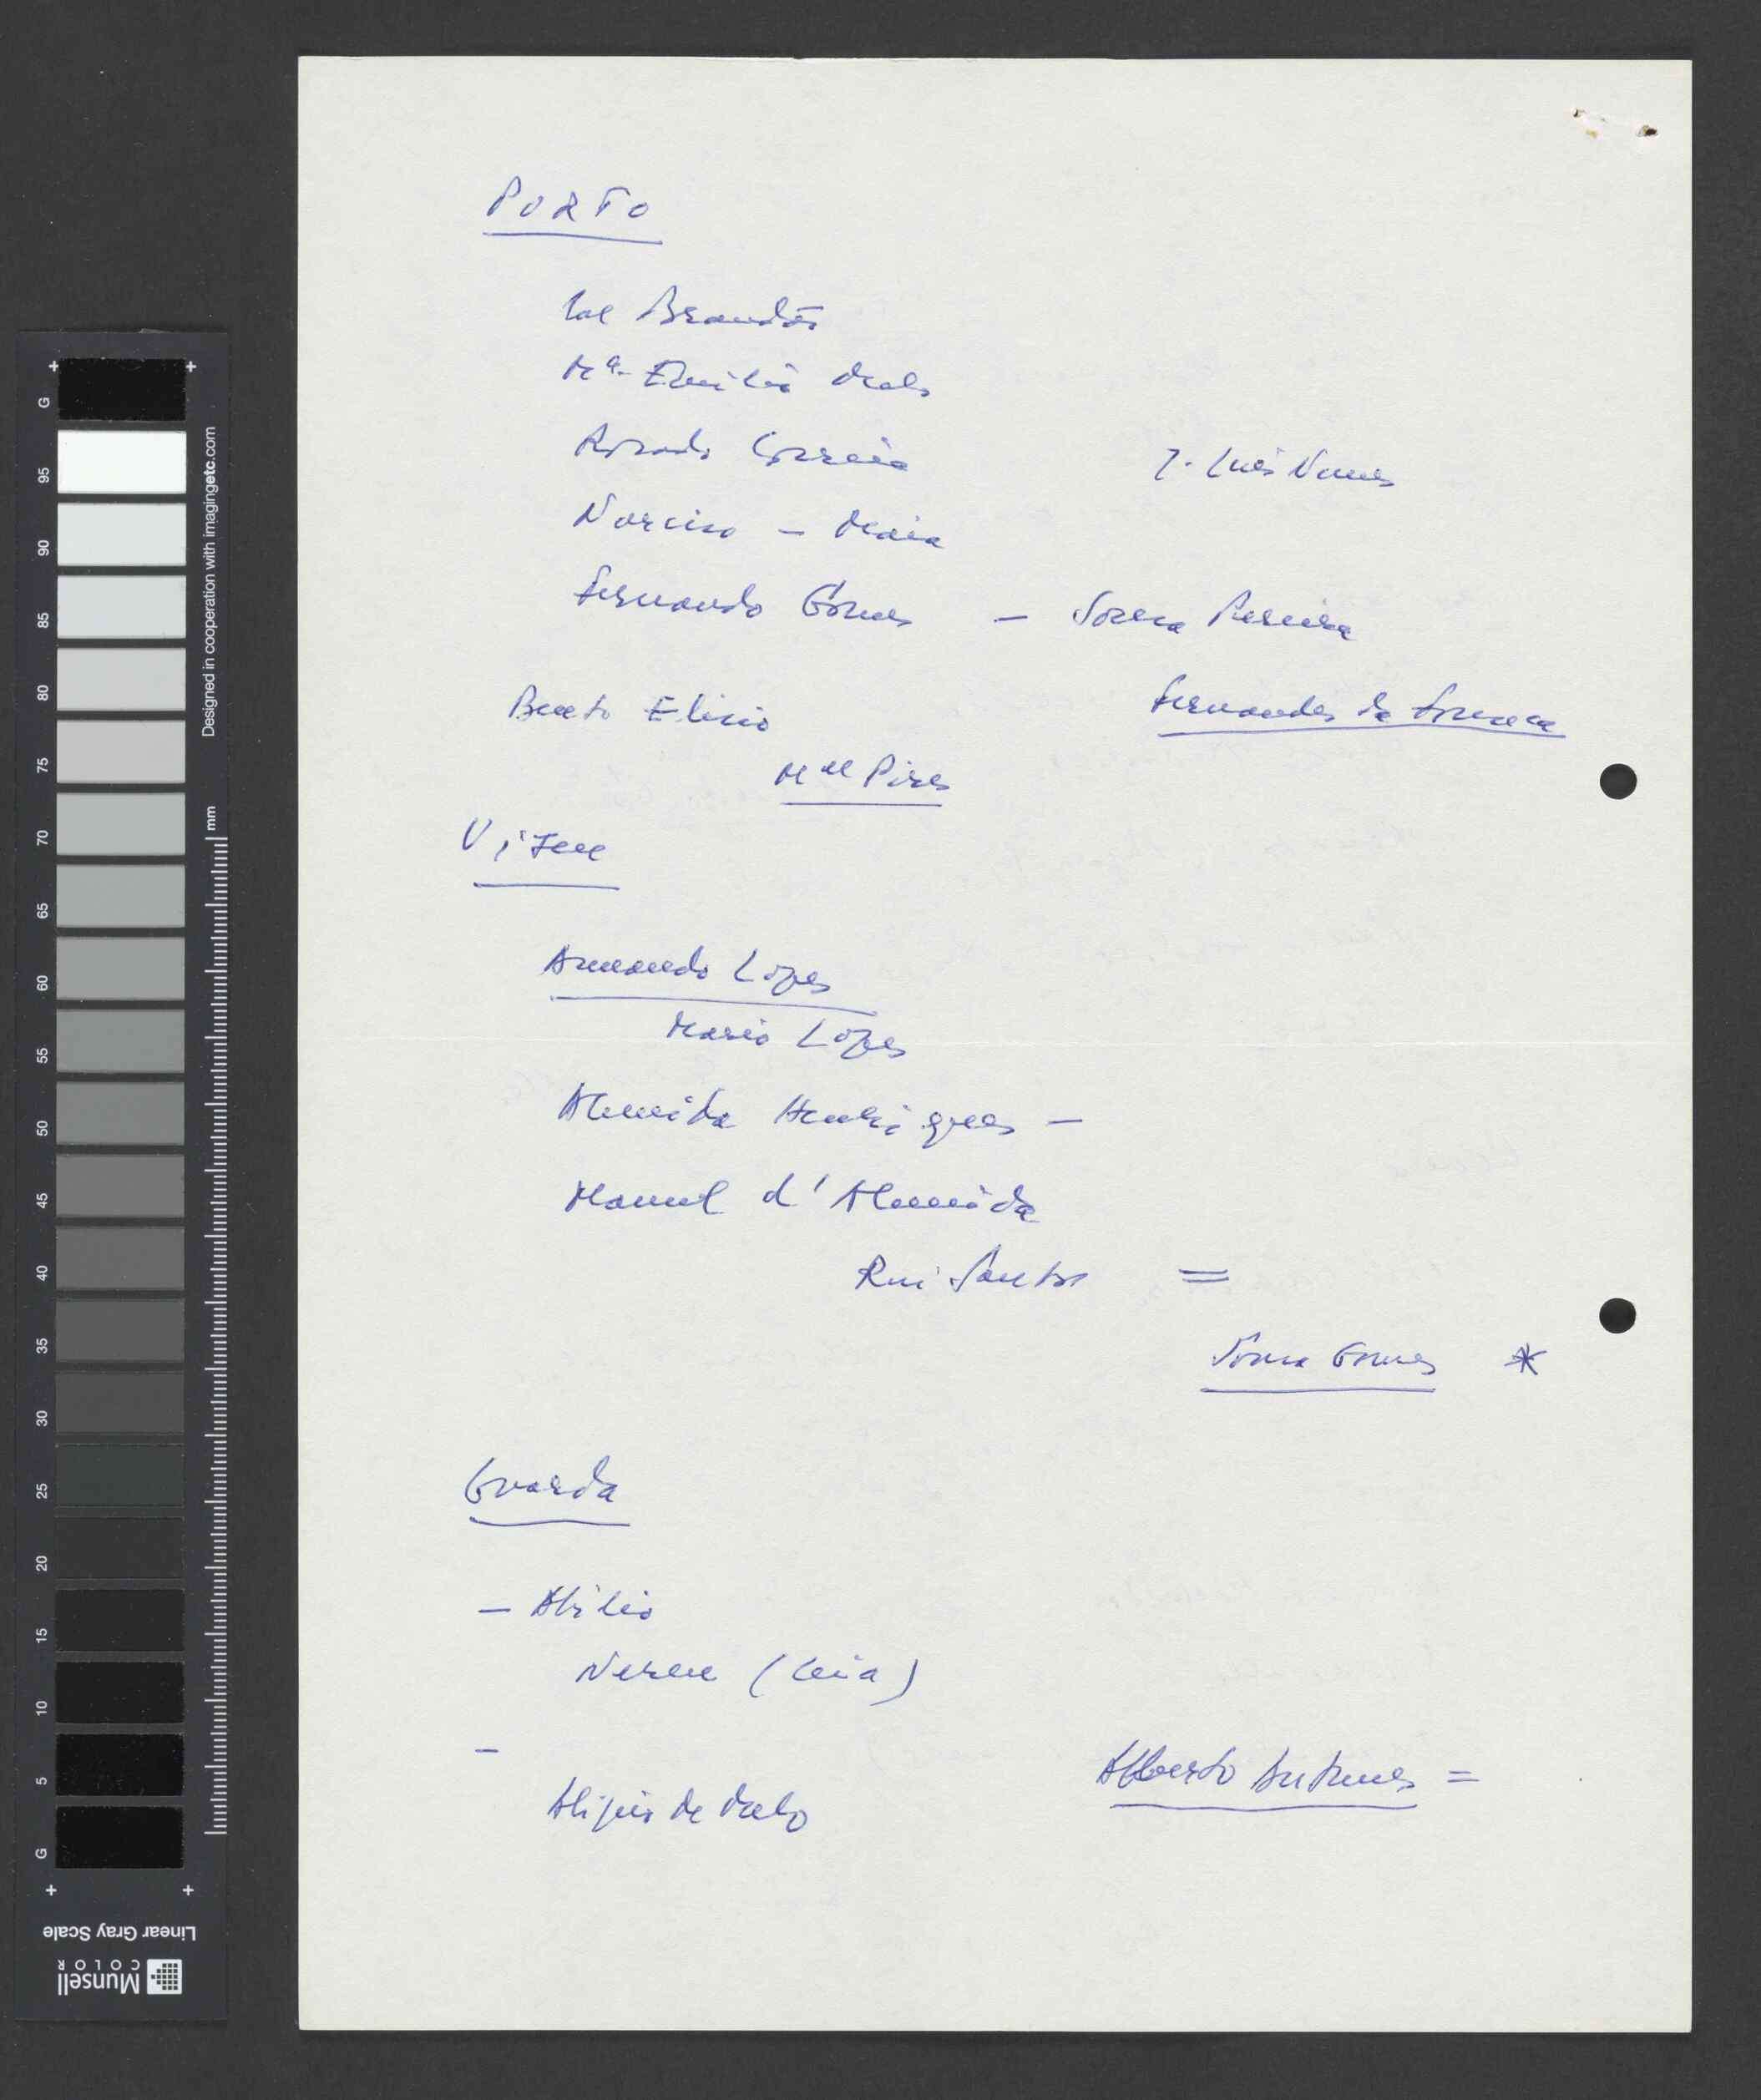 PORTO
Brandão
Mª Emília Melo
Rosado Correia
J. Luís Nunes
Narciso – Maia
Fernando Gomes – Sousa Pereira
Bento Elísio
Fernandes da Fonseca
Mel Pires
Viseu
Armando Lopes
Mário Lopes
Almeida Henriques –
Manuel d'Almeida
Rui Santos =
Sousa Gomes *
Guarda
– Abílio
(Ceia)
–
Alípio de Melo
Alberto Antunes =
G
95
90
85
80
75
70
65
60
55
50
45
40
35
30
25
20
15
10
5
G
mm
Designed in cooperation with imagingetc.com
Linear Gray Scale
Munsell
COLOR